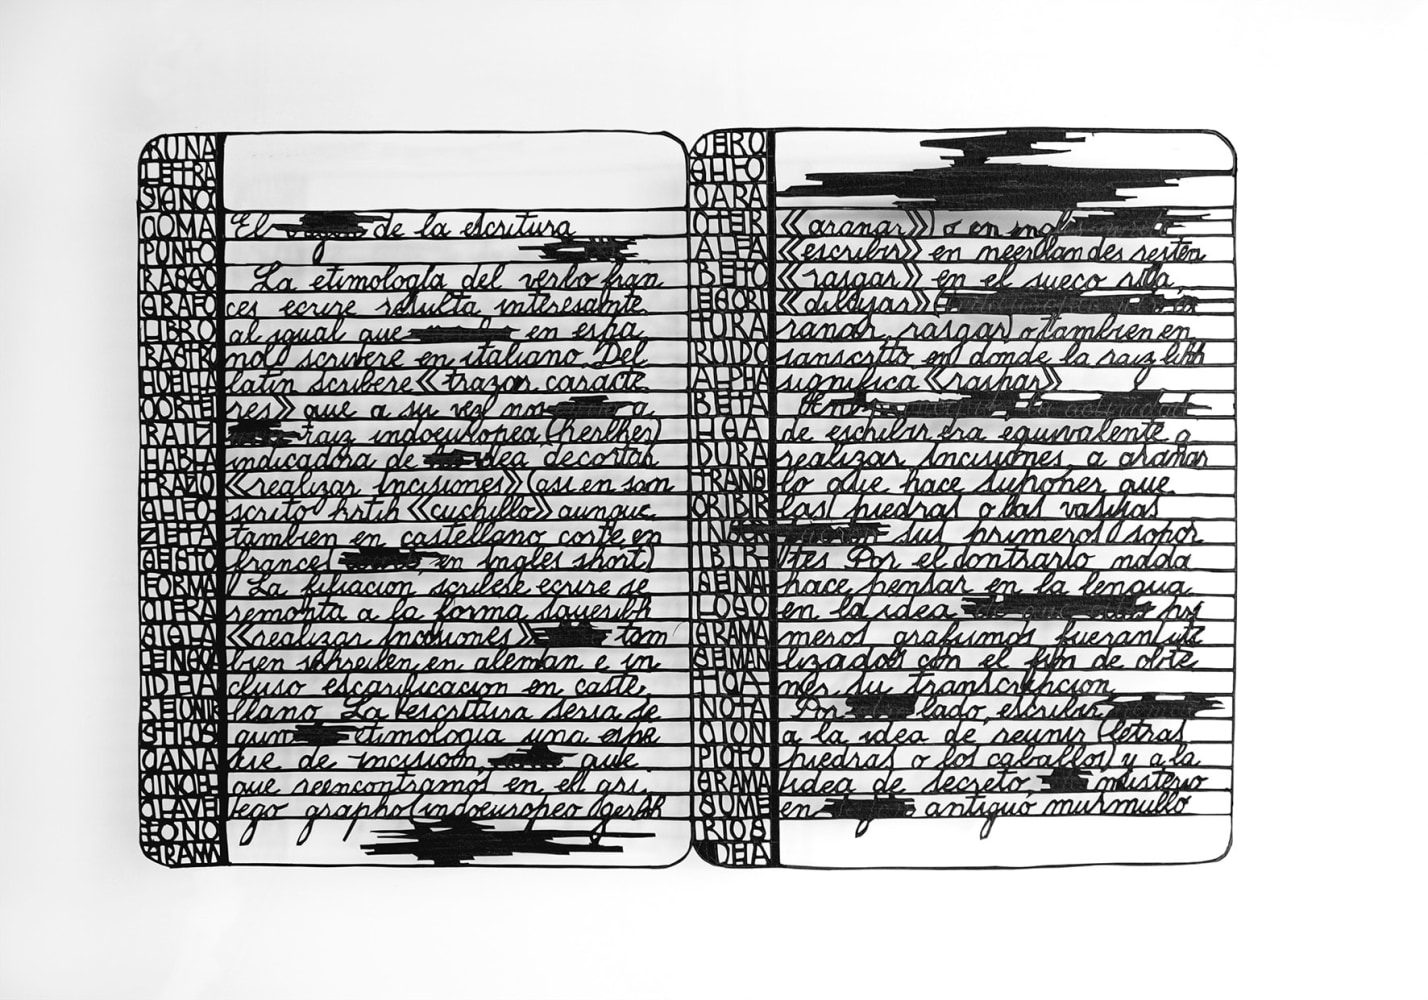 RUNA
LETRA
SIGNO
COMA
PUNTO
RASGO
GRAFO
LIBRO
RASTRO
HUELLA
CORTE
RAIZ
HABLA
TRAZO
GLIFO
ZETA
GESTO
FORMA
OTERA
SIGLA
LENGUA
IDEA
STILUS
CLAVE
FONO
GRAMA
El de la escritura
La etimologia del verbo fran
ces ecrire resulta interesante
al igual que en espa
nol scrivere en italiano Del
latin scribere «trazar caracte
res» que a su vez a
raiz indoeuropea (kerlher)
indicadora de idea decortar
«realizar incisiones» (asi en san
scrito krtih «cuchillo» aunque
tambien en castellano corte en
frances en ingles short)
La filiacion scribere ecrire se
remonta a la forma squeribh
«realizar incisiones» tam
bien schreiben en aleman e in
cluso escarificacion en caste
llano La escritura seria se
gun etimologia una espe
cie de incision que
que reencontramos en el gri
ego grapho (indoeuropeo (gerbh
GLIFO
CARA
ALFA
BETO
TURA
RUIDO
ALPHA
BETA
DURA
LOGO
GRAMA
SEMAN
NOTA
PICTO
GRAMA
SUME
RIOS
IDEA
«aranar») o en
«escribir» en neerlandes
«rasgar» en el sueco
«dibujar»
ranar rasgar) o tambien en
sanscrito en donde la raiz likh
significa «raspar»
de escribir era equivalente a
realizar incisiones a aranar
lo que hace suponer que
las piedras o las vasijas
sus primeros sopor
tes Por el contrario nada
hace pensar en la lengua
en la idea pri
meros grafismos fueran uti
lizados con el fin de obte
ner su transcripcion
Por lado, escribir
a la idea de reunir (letras
piedras o los caballos) y a la
idea de secreto misterio
en antiguo murmullo